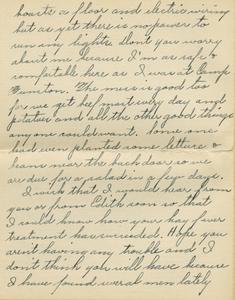 boasts a floor and electric wiring
but as yet there is no power to
run any lights. Don't you worry
about me because I'm as safe &
comfortable here as I was at Camp
Funston. The mess is good too
for we get beef most every day and
potatoes and all the other good things
anyone could want. Some one
had even planted some lettuce &
beans near the back door so we
are due for a salad in a few days.
I wish that I would hear from
you or from Edith soon so that
I could know how your hay fever
treatment has succeeded. Hope you
aren't having any trouble and I
don't think you will have because
I have found several men lately